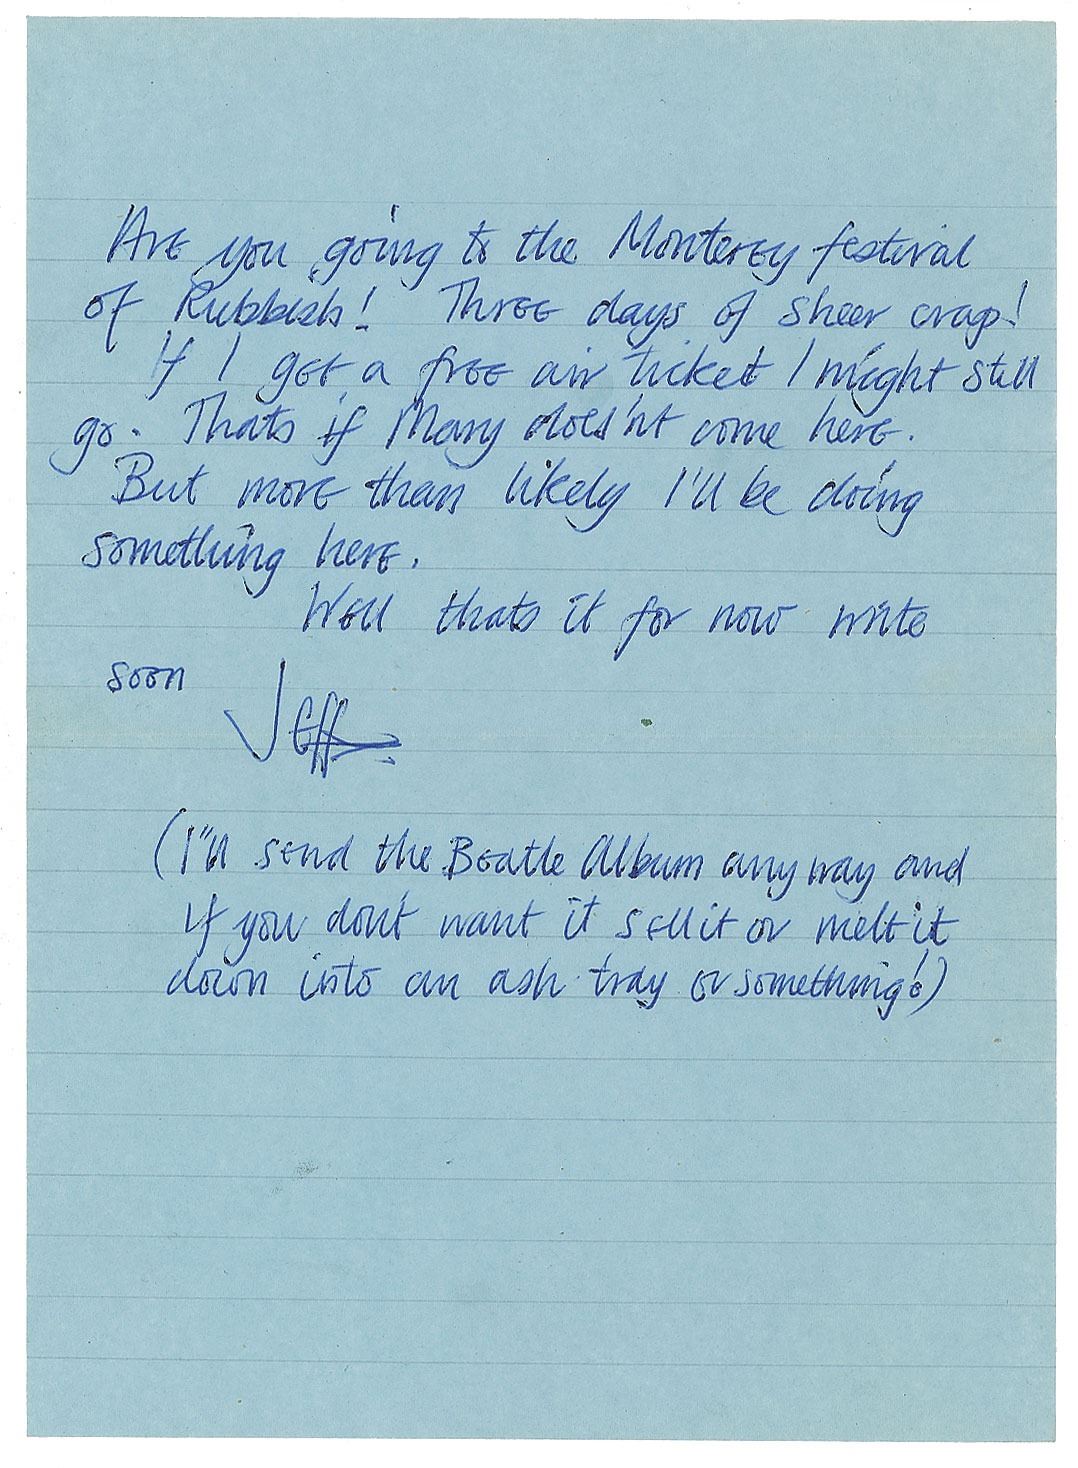 Are you going to the Monterey festival
of Rubbish! Three days of sheer crap!
If I get a free air ticket I might still
go. Thats if Mary does'nt come here.
But more than likely I'll be doing
something here.
Well thats it for now write
soon
Jeff
(I'll send the Beatle Album anyway and
if you dont want it sell it or melt it
down into an ash tray or something!)